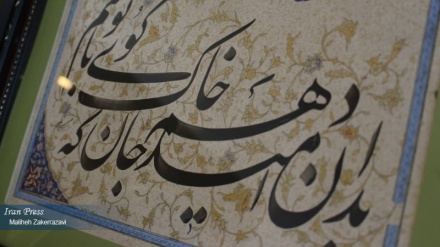 بدان امید دهم جان که
خاک کوی تو باشم
Iran Press
Maliheh Zakerrazavi